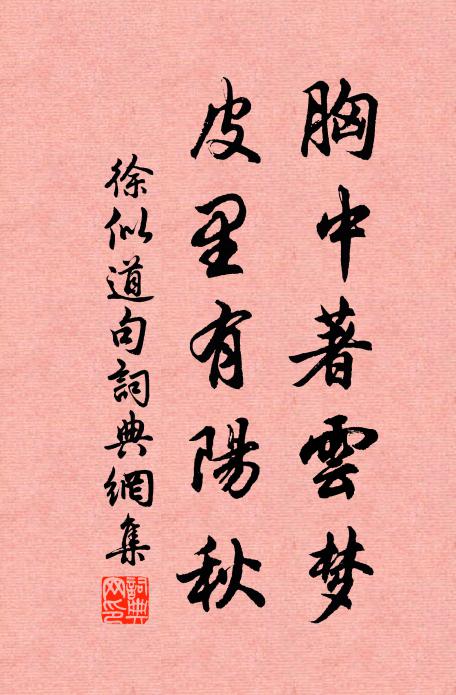 胸中著雲梦
皮里有陽秋
徐似道句詞典網集
詞典网印